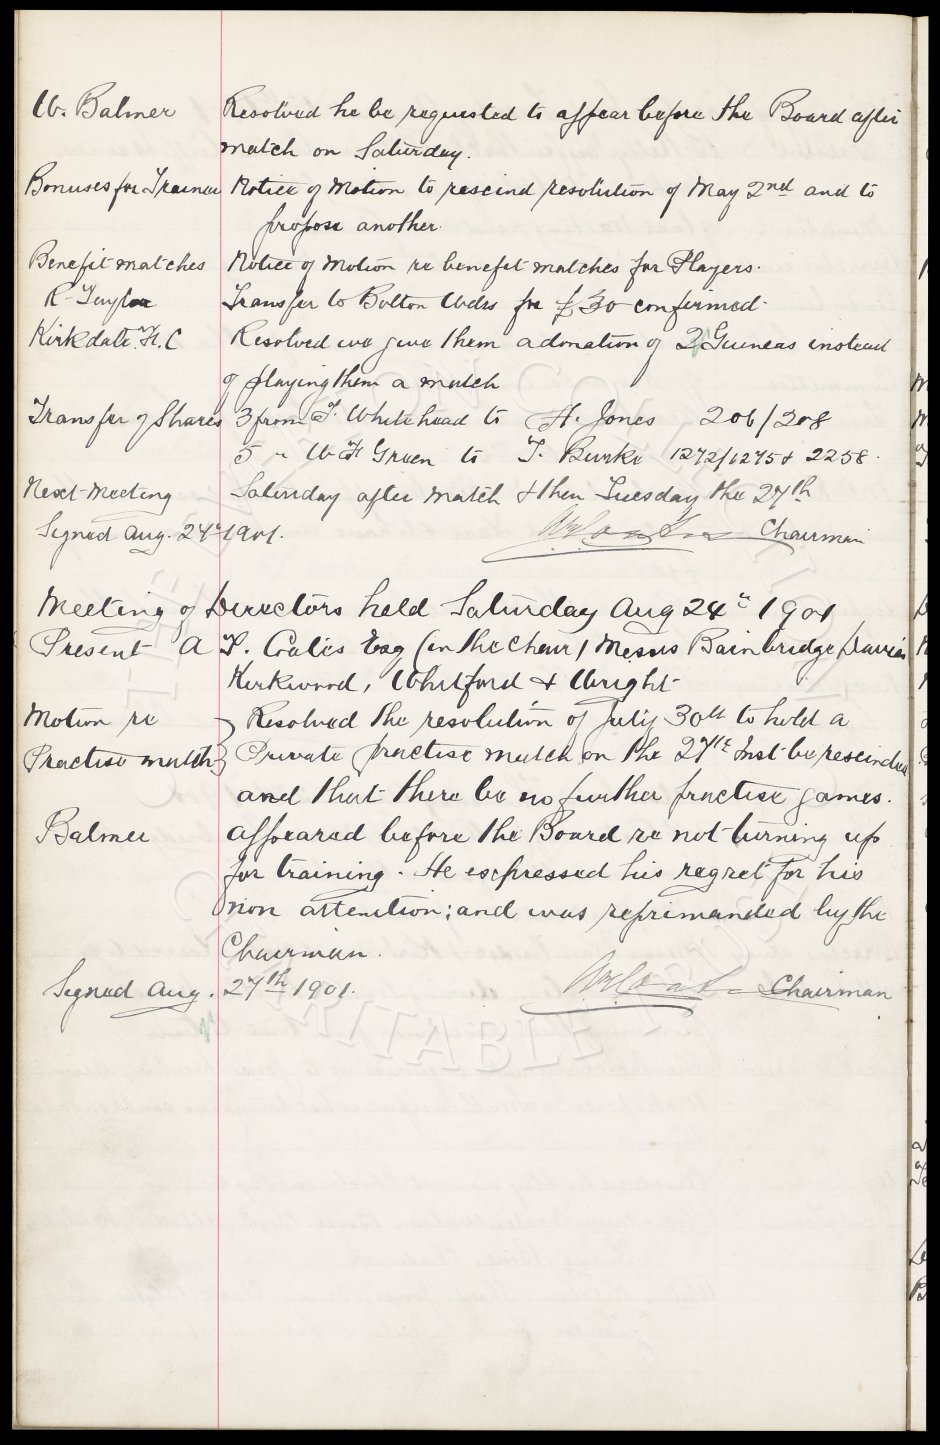 W. Balmer Resolved he be requested to appear before the Board after
match on Saturday.
Bonuses for Trainer Notice of Motion to rescind resolution of May 2nd and to
propose another.
Benefit matches Notice of Motion re benefit matches for Players.
R. Taylor Transfer to Bolton Wdrs for £30 confirmed.
Kirkdale F.C Resolved we give them a donation of 2 Guineas instead
of playing them a match
Transfer of Shares 3 from T. Whitehead to H. Jones 206/208
5 " W F Green to T. Burke 1272/1275 & 2258.
Next Meeting Saturday after match & then Tuesday the 27th
Signed Aug. 24th 1901. Chairman
Meeting of Directors held Saturday Aug 24th 1901
Present A T. Coates Esq (in the chair) Messrs Bainbridge, Davies
Kirkwood, Whitford & Wright
Motion re Resolved the resolution of July 30th to hold a
Practise match Private practise match on the 27th Inst be rescinded
and that there be no further practise games.
Balmer appeared before the Board re not turning up
for training. He expressed his regret for his
non attention; and was reprimanded by the
Chairman.
Signed Aug. 27th 1901. Chairman